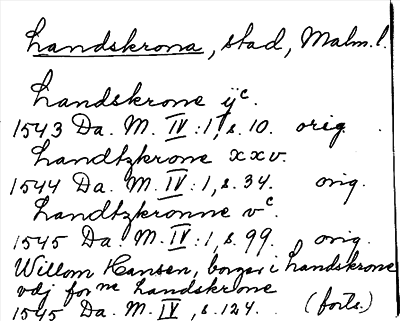 Landskrona, stad, Malm. l.
Landskrone ijc.
1543 Da. M. IV:1, s. 10. orig.
Landtzkrone xxv.
1544 Da. M. IV:1, s. 34. orig.
Landtzkronne vc.
1545 Da. M. IV:1, s. 99. orig.
Willom Hansen, borger i Landskrone
vdj forne Landskrone
1545 Da. M. IV, s. 124. (forts.)